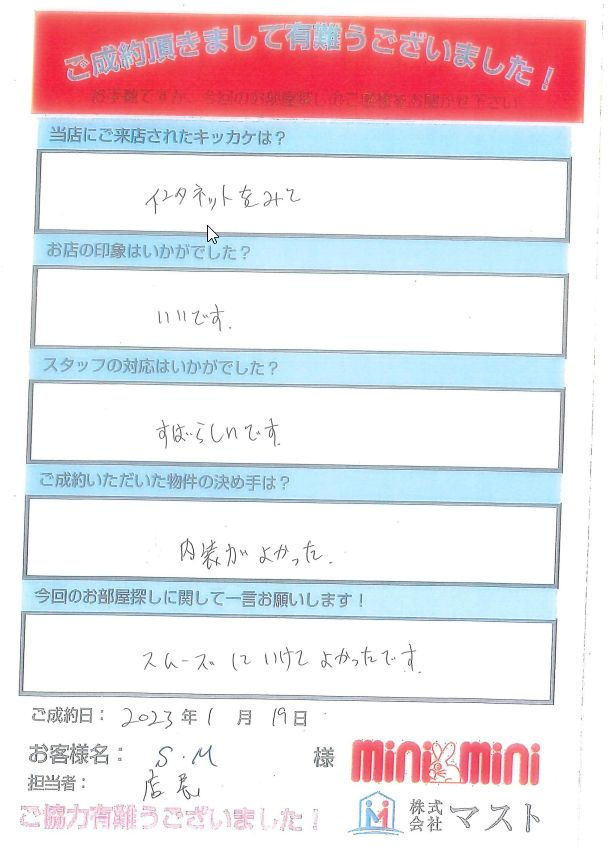 ご成約頂きまして有難うございました！
お手数ですが、今回のお部屋探しのご感想をお聞かせ下さい
当店にご来店されたキッカケは？
インタネットをみて
お店の印象はいかがでした？
いいです.
スタッフの対応はいかがでした？
すばらしいです.
ご成約いただいた物件の決め手は？
内装がよかった.
今回のお部屋探しに関して一言お願いします！
スムーズにいけてよかったです.
ご成約日： 2023 年 1 月 19 日
お客様名： S.M 様
minimini
担当者： 店長
ご協力有難うございました！
株式会社 マスト